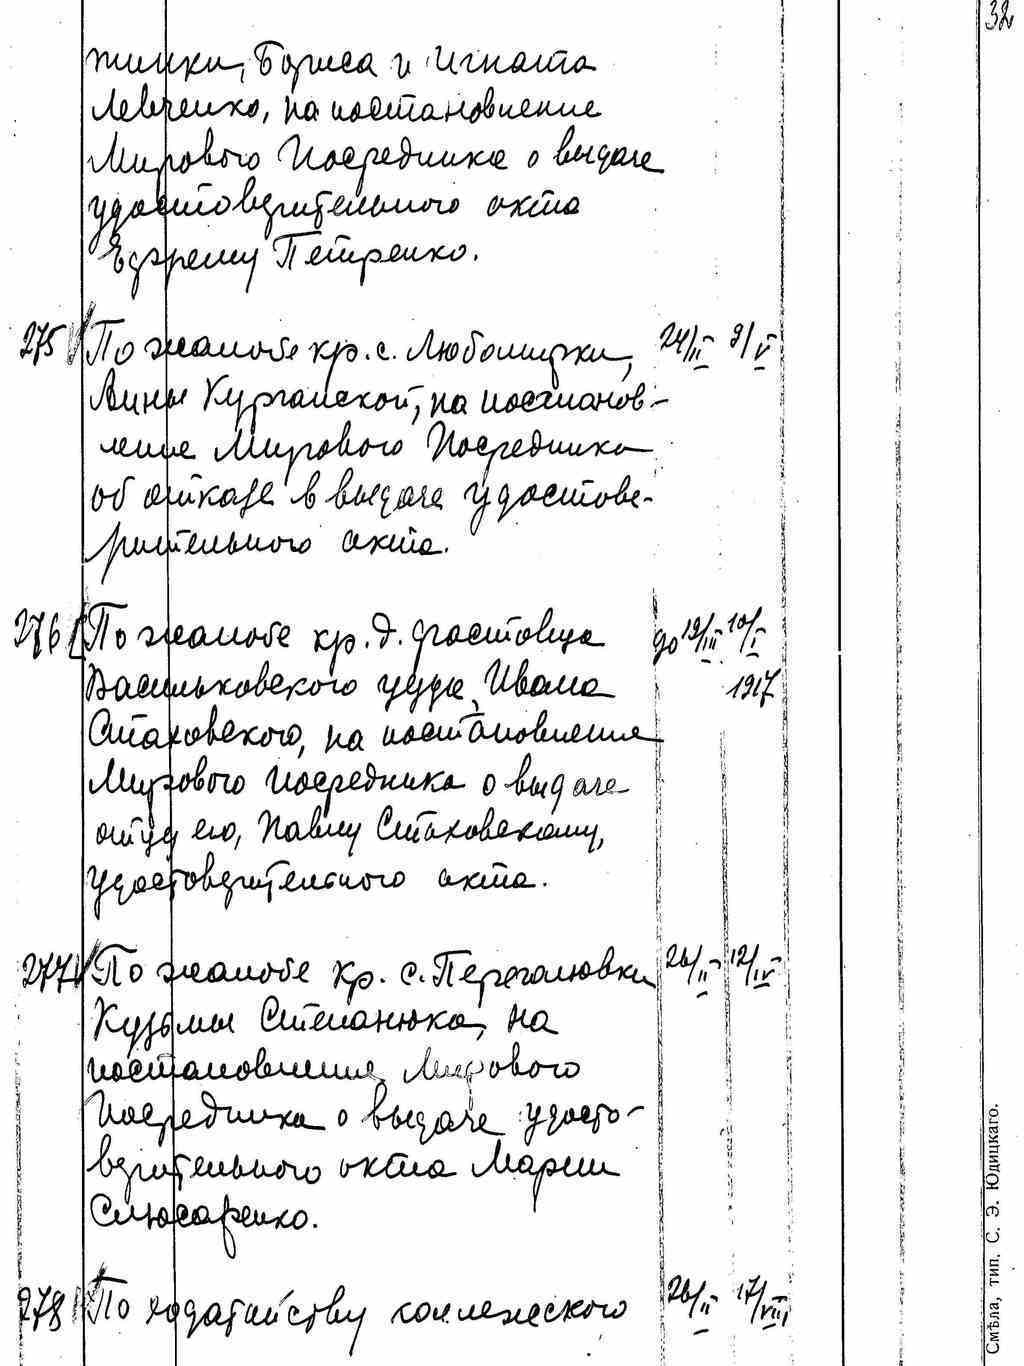 32
жинки, Бориса и Игната
Левченко, на постановление
Мирового Посредника о выдаче
удостоверительного акта
Ефрему Петренко.
275 По жалобе кр. с. Любомирки, 24/II 9/V
Анны Курганской, на постанов-
ление Мирового Посредника
об отказе в выдаче удостове-
рительного акта.
276 По жалобе кр. д. Фастовца до 19/III 10/I
Васильковского уезда, Ивана 1917
Стаховского, на постановление
Мирового Посредника о выдаче
отцу его, Павлу Стаховскому,
удостоверительного акта.
277 По жалобе кр. с. Перегоновки 26/II 12/IV
Кузьмы Степанюка, на
постановление Мирового
Посредника о выдаче удосто-
верительного акта Марии
Слюсаренко.
278 По ходатайству коллежского 26/II 17/VIII
Смѣла, тип. С. Э. Юдицкаго.